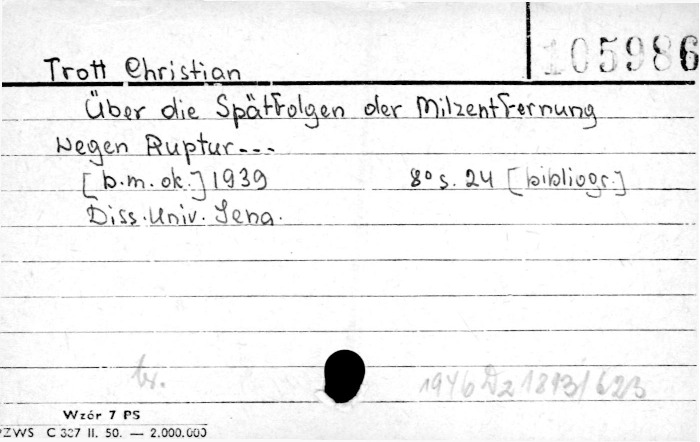 105986
Trott Christian
Über die Spätfolgen der Milzentfernung
wegen Ruptur---
[b.m.ok.] 1939 8° s. 24 [bibliogr.]
Diss. Univ. Jena.
br.
1946 Dz 1893/623
Wzór 7 PS
PZWS C 327 II. 50. — 2.000.000